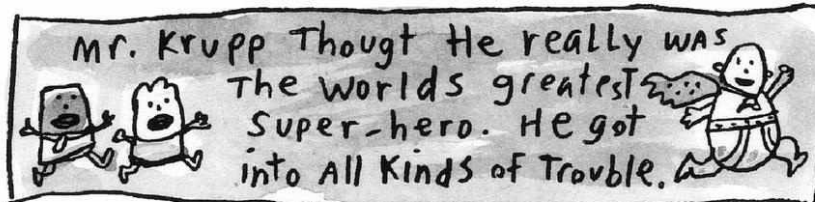 Mr. Krupp Thougt He really was
The worlds greatest
Super-hero. He got
into All Kinds of Trouble.